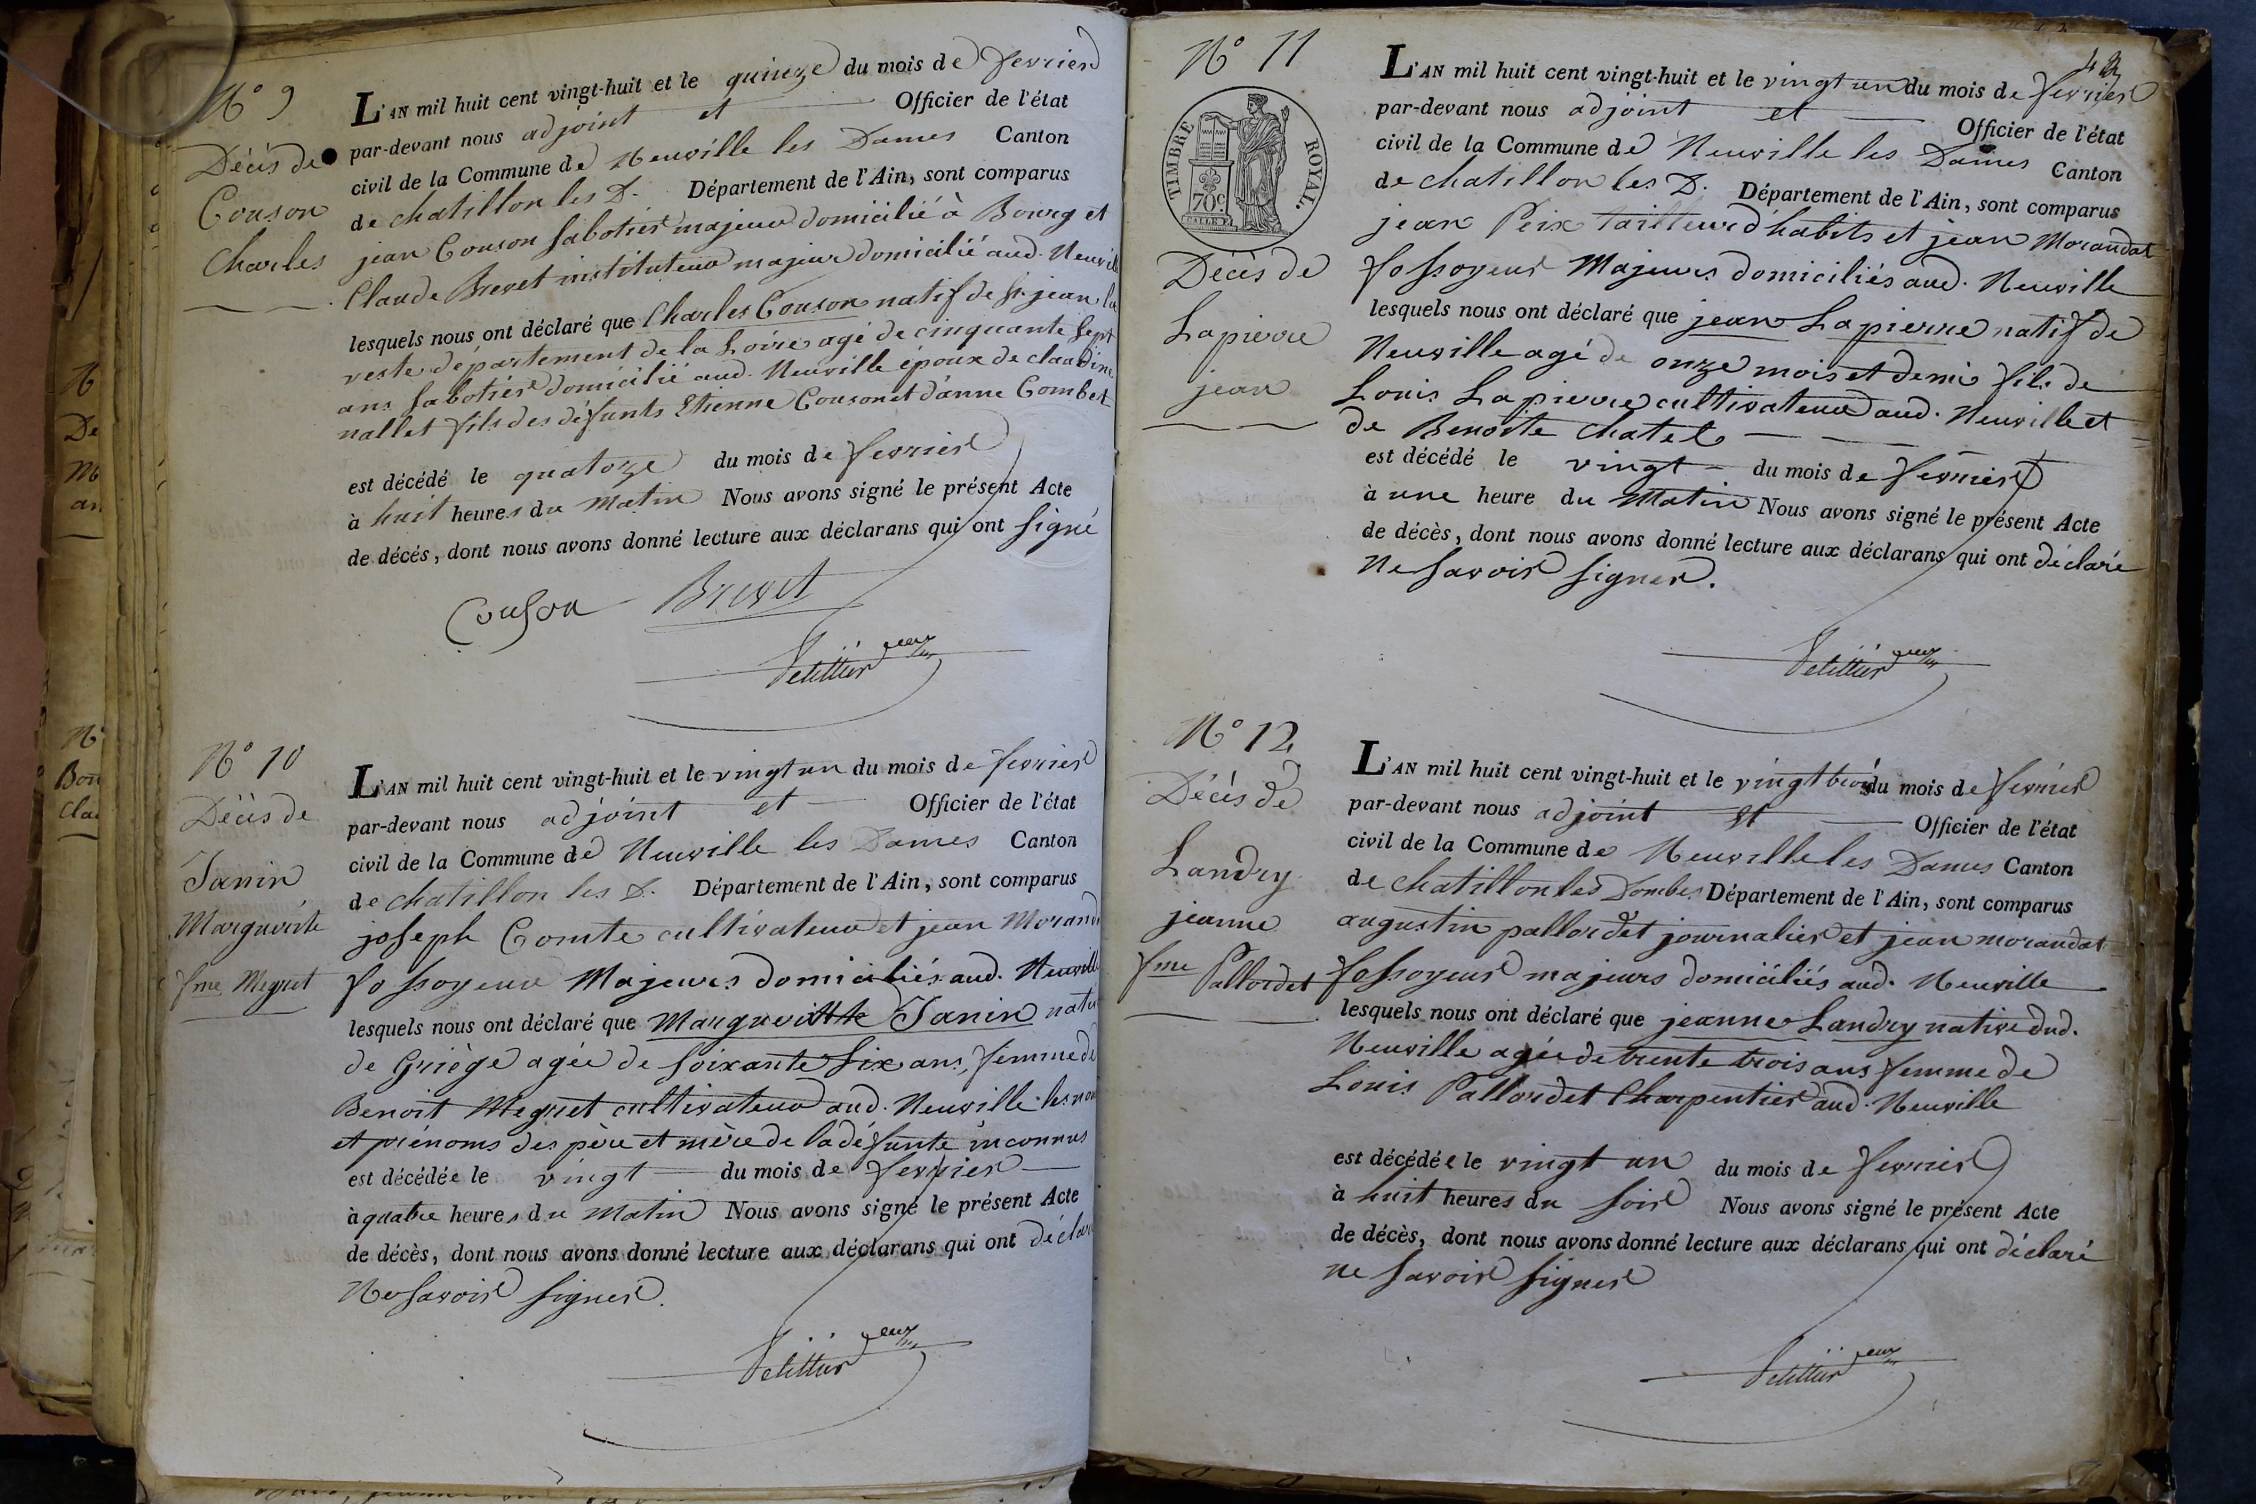 N° 9
Décès de
Couson
Charles
L'AN mil huit cent vingt-huit et le quinze du mois de fevrier
par-devant nous adjoint et Officier de l'état
civil de la Commune de Neuville les Dames Canton
de chatillon les D. Département de l'Ain, sont comparus
jean Couson sabotier majeur domicilié à Bourg et
Claude Brevet instituteur majeur domicilié aud. Neuville
lesquels nous ont déclaré que Charles Couson natif de St. jean la
veste département de la Loire agé de cinquante sept
ans sabotier domicilié aud. Neuville époux de claudine
nallet fils des défunts Etienne Couson et d'anne Combet
est décédé le quatorze du mois de fevrier
à huit heures du Matin Nous avons signé le présent Acte
de décés, dont nous avons donné lecture aux déclarans qui ont signé
Couson Brevet
Petittier
N° 10
Décès de
Janin
Marguerite
fme Megret
L'AN mil huit cent vingt-huit et le vingt un du mois de fevrier
par-devant nous adjoint et Officier de l'état
civil de la Commune de Neuville les Dames Canton
de chatillon les D. Département de l'Ain, sont comparus
joseph Comte cultivateur et jean Morand
fossoyeur Majeurs domiciliés aud. Neuville
lesquels nous ont déclaré que Marguerite Janin nati
de Griège agée de soixante six ans, femme de
Benoit Megret cultivateur aud. Neuville les nom
et prénoms des père et mère de la défunte inconnus
est décédée le vingt du mois de fevrier
à quatre heures du Matin Nous avons signé le présent Acte
de décès, dont nous avons donné lecture aux déclarans qui ont déclaré
Ne savoir signer.
Petittier
N° 11
TIMBRE ROYAL.
70 c.
Décès de
Lapierre
jean
L'AN mil huit cent vingt-huit et le vingt un du mois de fevrier
par-devant nous adjoint et Officier de l'état
civil de la Commune de Neuville les Dames Canton
de chatillon les D. Département de l'Ain, sont comparus
jean Peix tailleur d'habits et jean Morandat
fossoyeur Majeurs domiciliés aud. Neuville
lesquels nous ont déclaré que jean Lapierre natif de
Neuville agé de onze mois et demi fils de
Louis Lapierre cultivateur aud. Neuville et
de Benoite chatel
est décédé le vingt du mois de fevrier
à une heure du Matin Nous avons signé le présent Acte
de décès, dont nous avons donné lecture aux déclarans qui ont déclaré
Ne savoir signer.
Petittier
N° 12
Décès de
Landry
jeanne
fme Pallordet
L'AN mil huit cent vingt-huit et le vingt trois du mois de fevrier
par-devant nous adjoint et Officier de l'état
civil de la Commune de Neuville les Dames Canton
de chatillon les Dombes Département de l'Ain, sont comparus
augustin pallordet journalier et jean morandat
fossoyeur majeurs domiciliés aud. Neuville
lesquels nous ont déclaré que jeanne Landry native dud.
Neuville agée de trente trois ans femme de
Louis Pallordet Charpentier aud. Neuville
est décédée le vingt un du mois de fevrier
à huit heures du soir Nous avons signé le présent Acte
de décès, dont nous avons donné lecture aux déclarans qui ont déclaré
ne savoir signer
Petittier